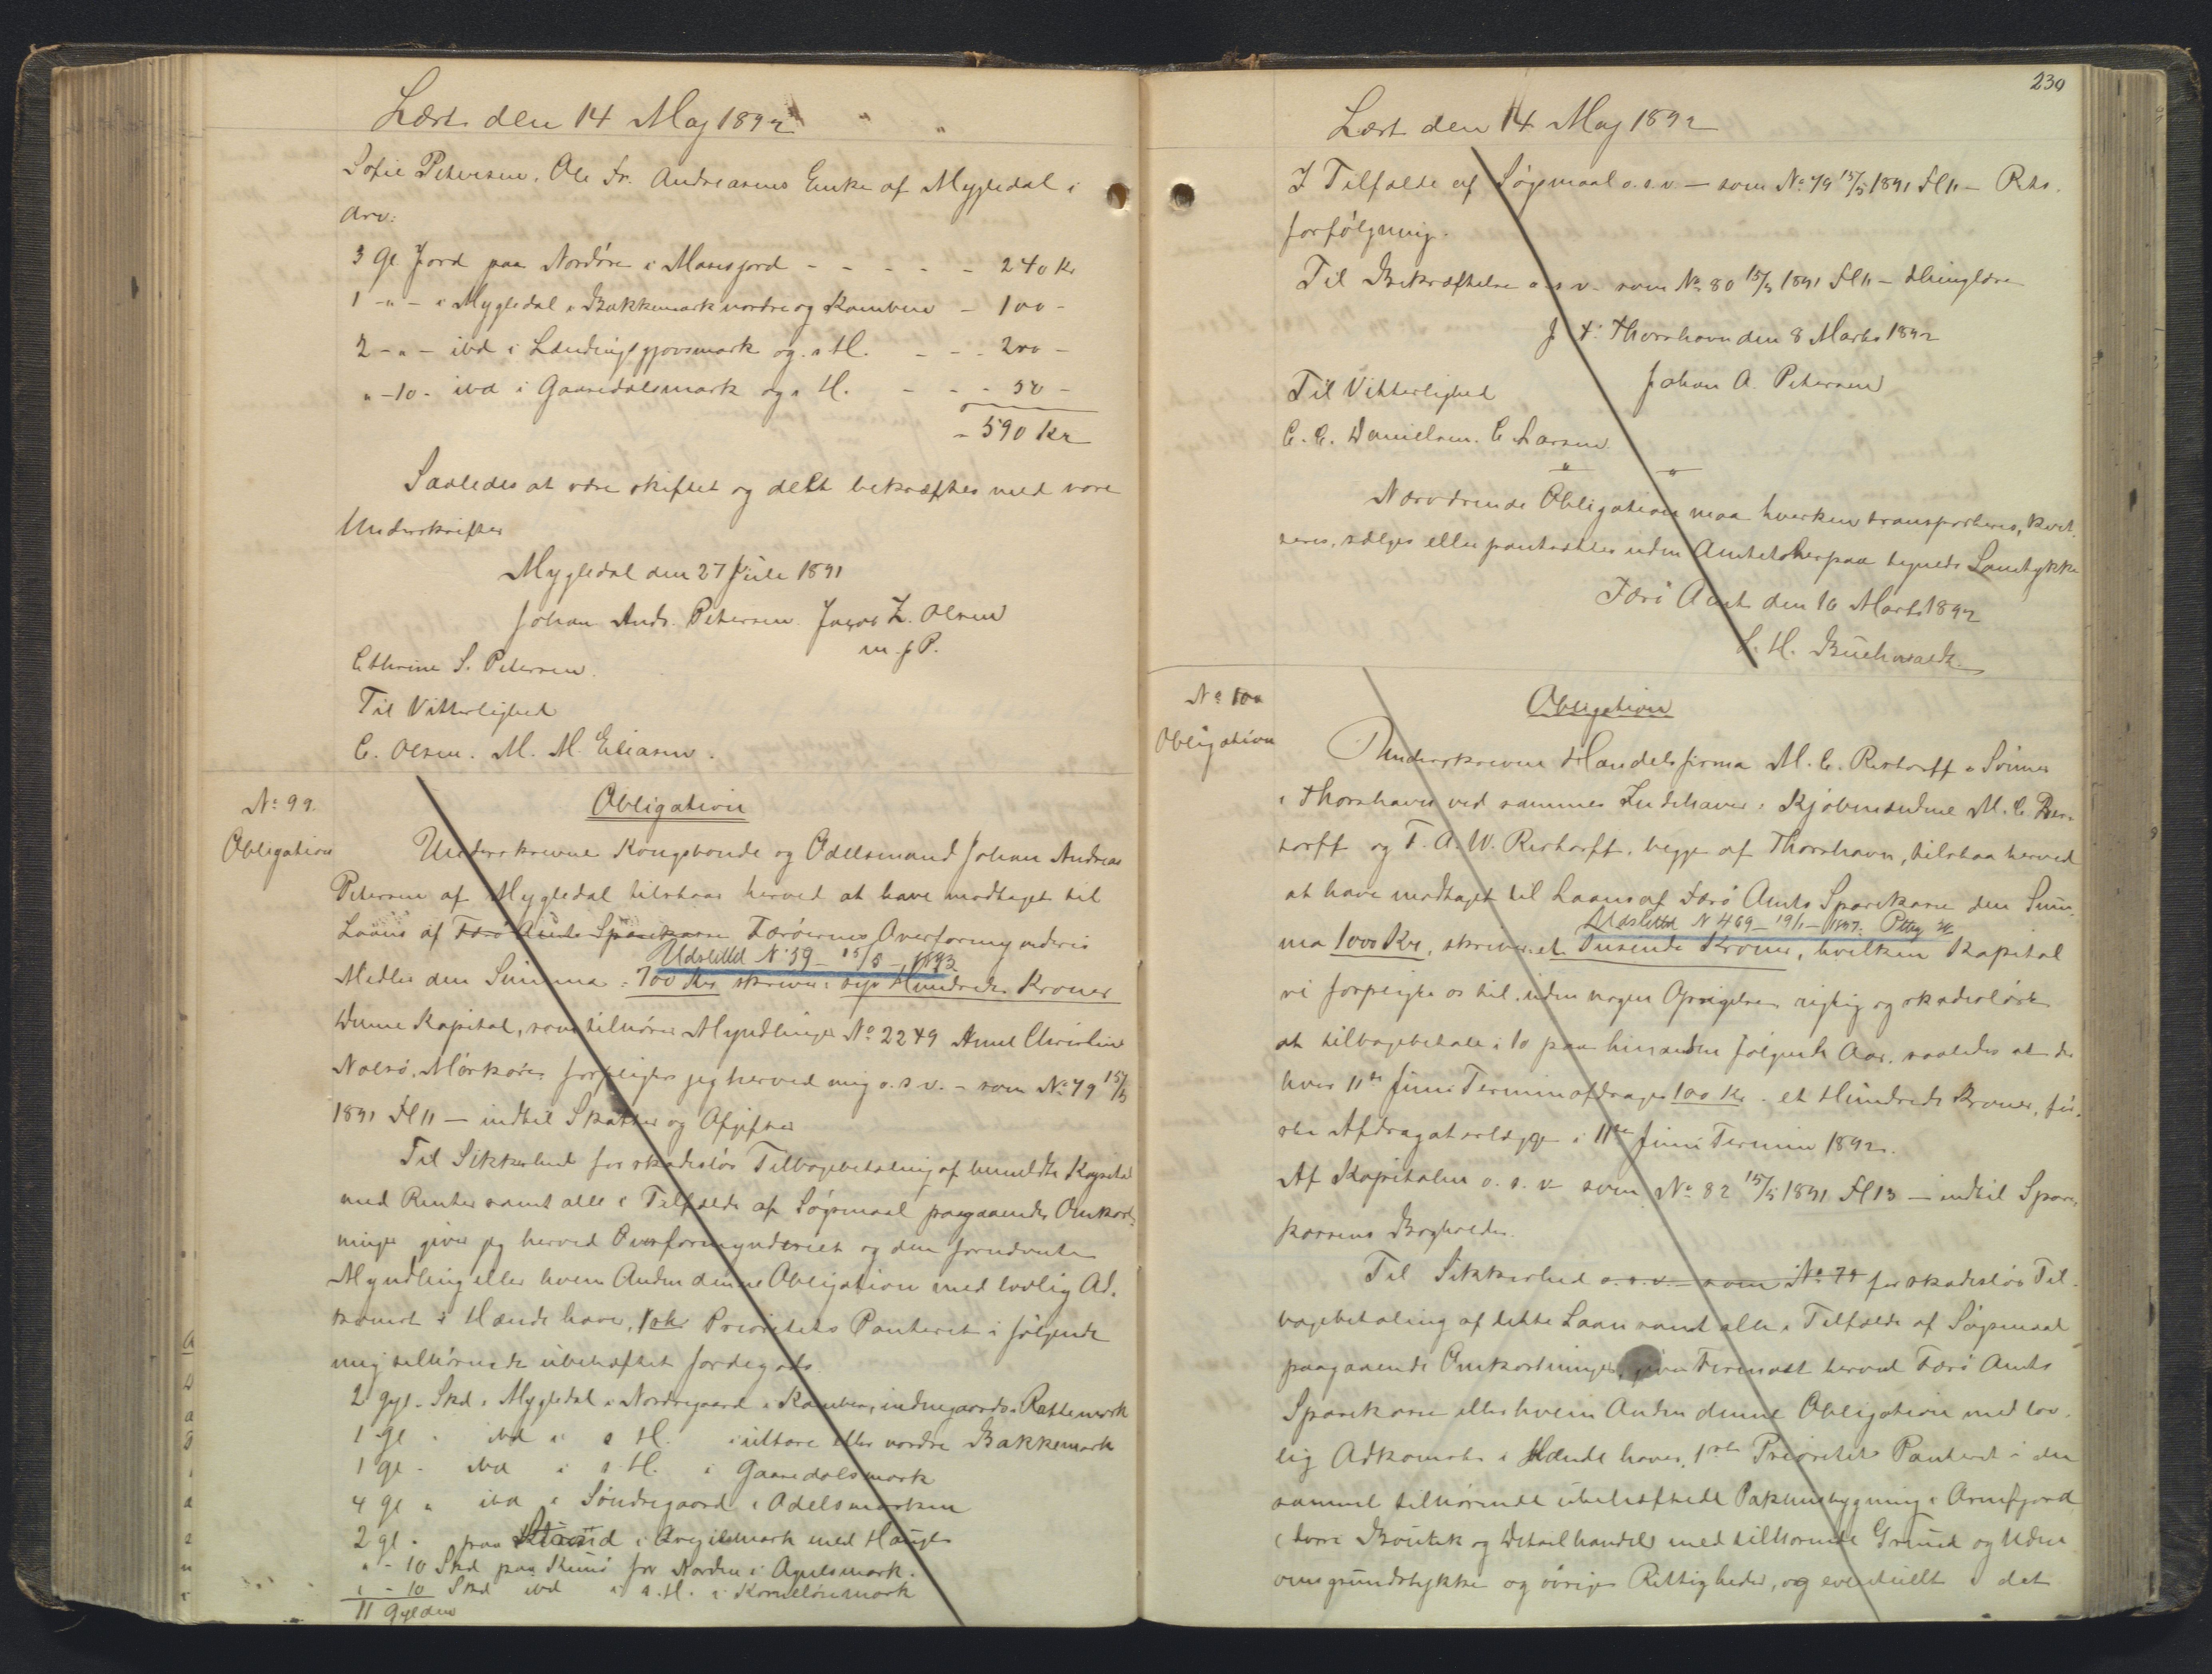 Læst den 14 Maj 1892
Sofie Petersen, Ole Fr. Andreasens Enke af Mygledal i
Arv:
3 Gl Jord paa Nordøre i Maresjord - - - - - 240 Kr
1 -"- i Mygledal i Bakkemark nordre og Kamben - 100 -
2 -"- ibd i Lændingsgjovsmark og s. H. - - - 200 -
" -10 - ibd i Gaasedalsmark og s. H. - - - 50 -
- 590 Kr
Saaledes at være skiftet og delt bekræftes med vore
Underskrifter
Mygledal den 27 Juli 1891
Johan Andr. Petersen. Jacob Z. Olsen
m. f P.
Cthrine S. Petersen.
Til Vitterlighed
C. Olsen. M. M. Eliasen.
No 99.
Obligation
Obligation
Underskrevne Kongsbonde og Odelsmand Johan Andreas
Petersen af Mygledal tilstaar herved at have modtaget til
Laans af Færø Amts Sparekasse Færøernes Overformynderis
Udslettet No 39 - 15/5 - 1893
Midler den Summa: 700 Kr skriver: syv Hundrede Kroner
Denne Kapital, som tilhører Myndlinge No 2249 Anne Christine
Nolsø, Mørkøre forpligter jeg herved mig o. s. v. - som No 79 15/5
1891 Fl 11 - indtil Skatter og Afgifter
Til Sikkerhed for skadesløs Tilbagebetaling af bemeldte Kapital
med Renter samt alle i Tilfælde af Søgsmaal paagaaende Omkost-
ninger giver jeg herved Overformynderiet og den fornævnte
Myndling eller hvem Anden denne Obligation med lovlig Ad-
komst i Hænde haver, 1ste Prioritets Panteret i følgende
mig tilhørende ubehæftet Jordegods
2 gyl. Skd i Mygledal i Nordregaard i Kamben, indengaards i Rattemark
1 gl " ibd i s H. i ultare eller nordre Bakkemark
1 gl - ibd i s. H. i Gaasedalsmark
4 gl " ibd i Søndregaard i Odelsmarken
2 gl - paa Strand i Aregilsmark med Hauge
" - 10 Skd paa Kunø for Norden i Agnelsmark.
" - 10 Skd ibd i s. H. i Kornelønmark
11 Gylden
230
Læst den 14 Maj 1892
I Tilfælde af Søgsmaal o. s. v - som No 79 15/5 1891 Fl 11 - Rets-
forfølgning.
Til Bekræftelse o. s. v. som No 80 15/5 1891 Fl 11 - thinglæse
p t. Thorshavn den 8 Marts 1892
Til Vitterlighed
Johan A. Petersen
C. C. Danielsen. C Larsen
Nærværende Obligation maa hverken transporteres, kvit-
teres, sælges eller pantsættes uden Amtets herpaa tegnede Samtykke
Færø Amt den 10 Marts 1892
C. H. Buchwaldt.
No 100
Obligation
Obligation
Underskrevne Handelsfirma M. C. Restorff & Sønner
i Thorshavn ved sammes Indehavere: Kjøbmændene M. C. Res-
torff og T. A. W. Restorff, begge af Thorshavn, tilstaa herved
at have modtaget til Laans af Færø Amts Sparekasse den Sum-
Udslettet N 469 - 19/11 - 1897.
ma 1000 Kr. skriver et Tusende Kroner, hvilken Kapital
vi forpligte os til, uden nogen Opsigelse, rigtig og skadesløst
at tilbagebetale i 10 paa hinanden følgende Aar, saaledes at der
hver 11te Juni Termin afdrages 100 Kr - et Hundrede Kroner, før-
ste Afdrag at erlægge i 11te Juni Termin 1892.
Af Kapitalen o. s. v som No 82 15/5 1891 Fl 13 - indtil Spare-
kassens Bogholder.
Til Sikkerhed o. s. v. - som No 79 for skadesløs Til-
bagebetaling af dette Laan samt alle i Tilfælde af Søgsmaal
paagaaende Omkostninger, giver Firmaet herved Færø Amts
Sparekasse eller hvem Anden denne Obligation med lov-
lig Adkomst i Hænde haver, 1ste Prioritets Panteret i den
samme tilhørende ubehæftede Pakhusbygning i Arnefjord
(hvori Boutik og Detailhandel) med tilhørende Grund og Uden
omsgrundstykke og øvrige Rettigheder, og eventuelt i det